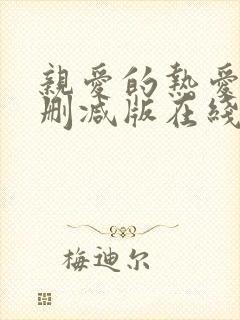 親愛的熱愛
刪减版在綫
梅迪尔